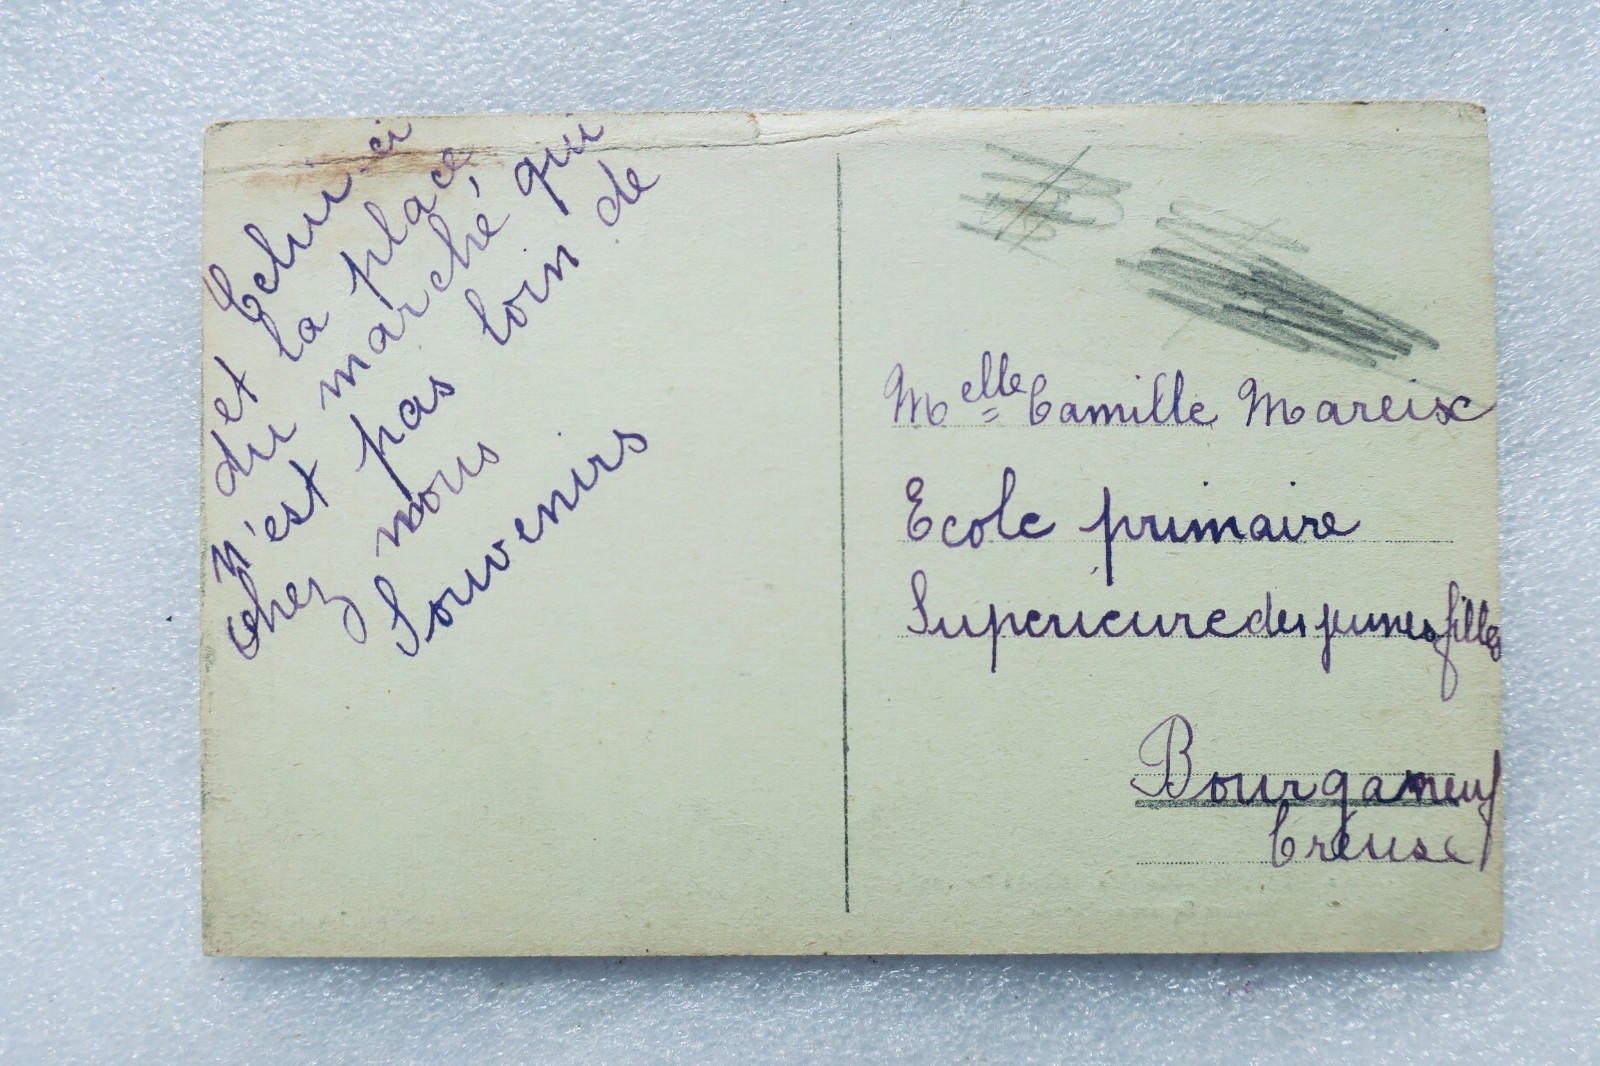 Celui-ci
et la place
du marché qui
n'est pas loin de
chez nous
Souvenirs
Melle Camille Mareix
Ecole primaire
Superieure des jeunes filles
Bourganeuf
Creuse